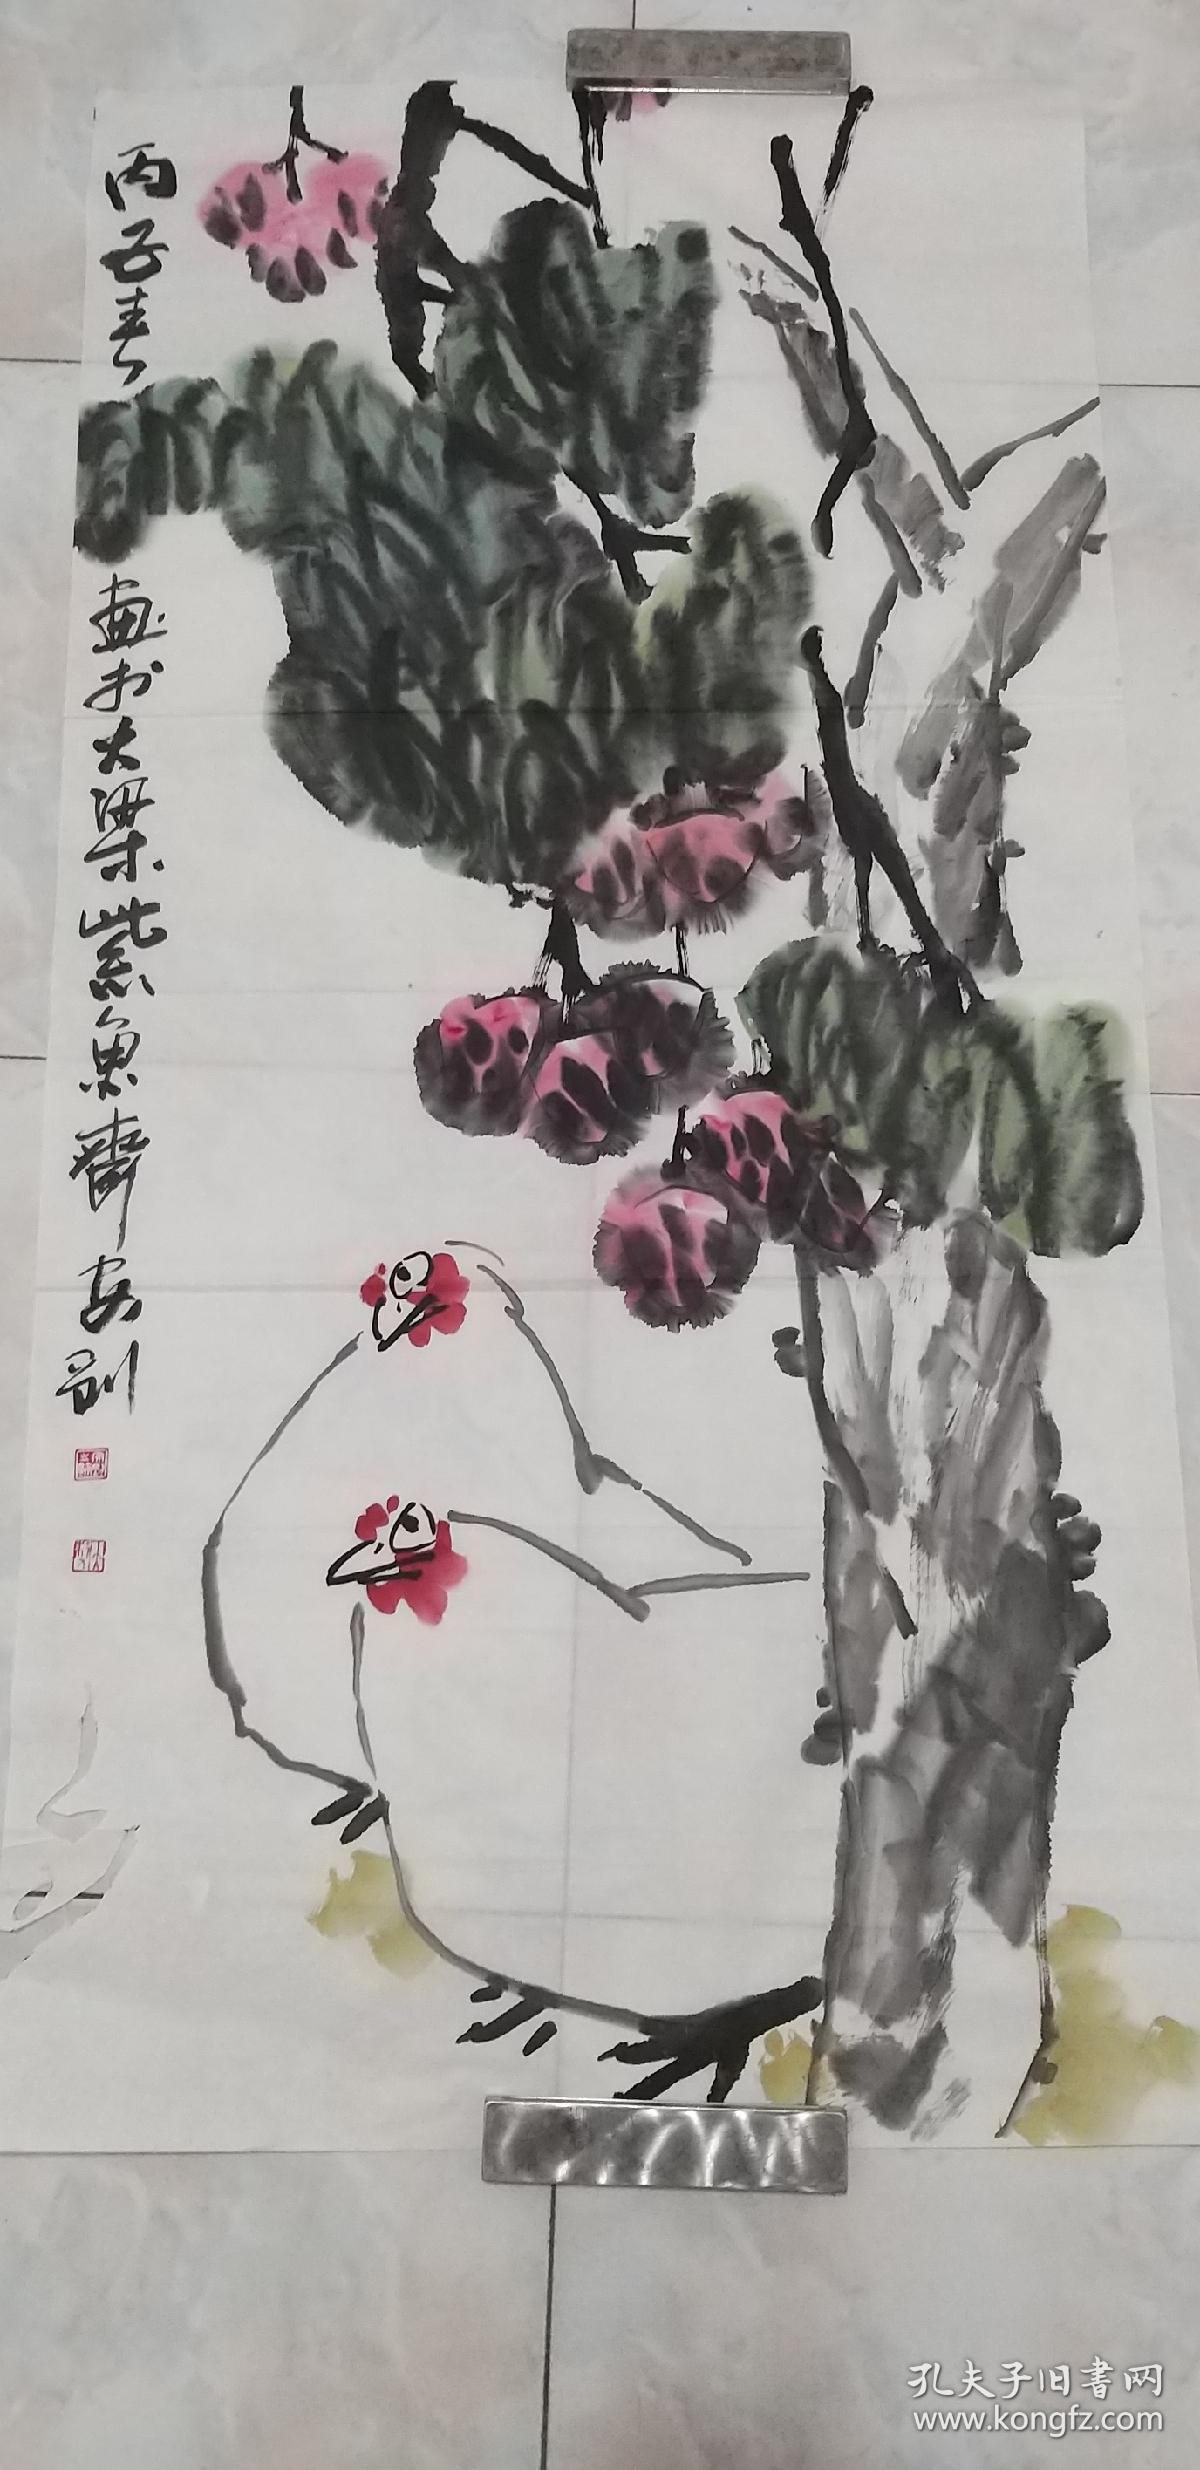 丙子春
画于大梁紫鱼斋
孔夫子旧书网
www.kongfz.com